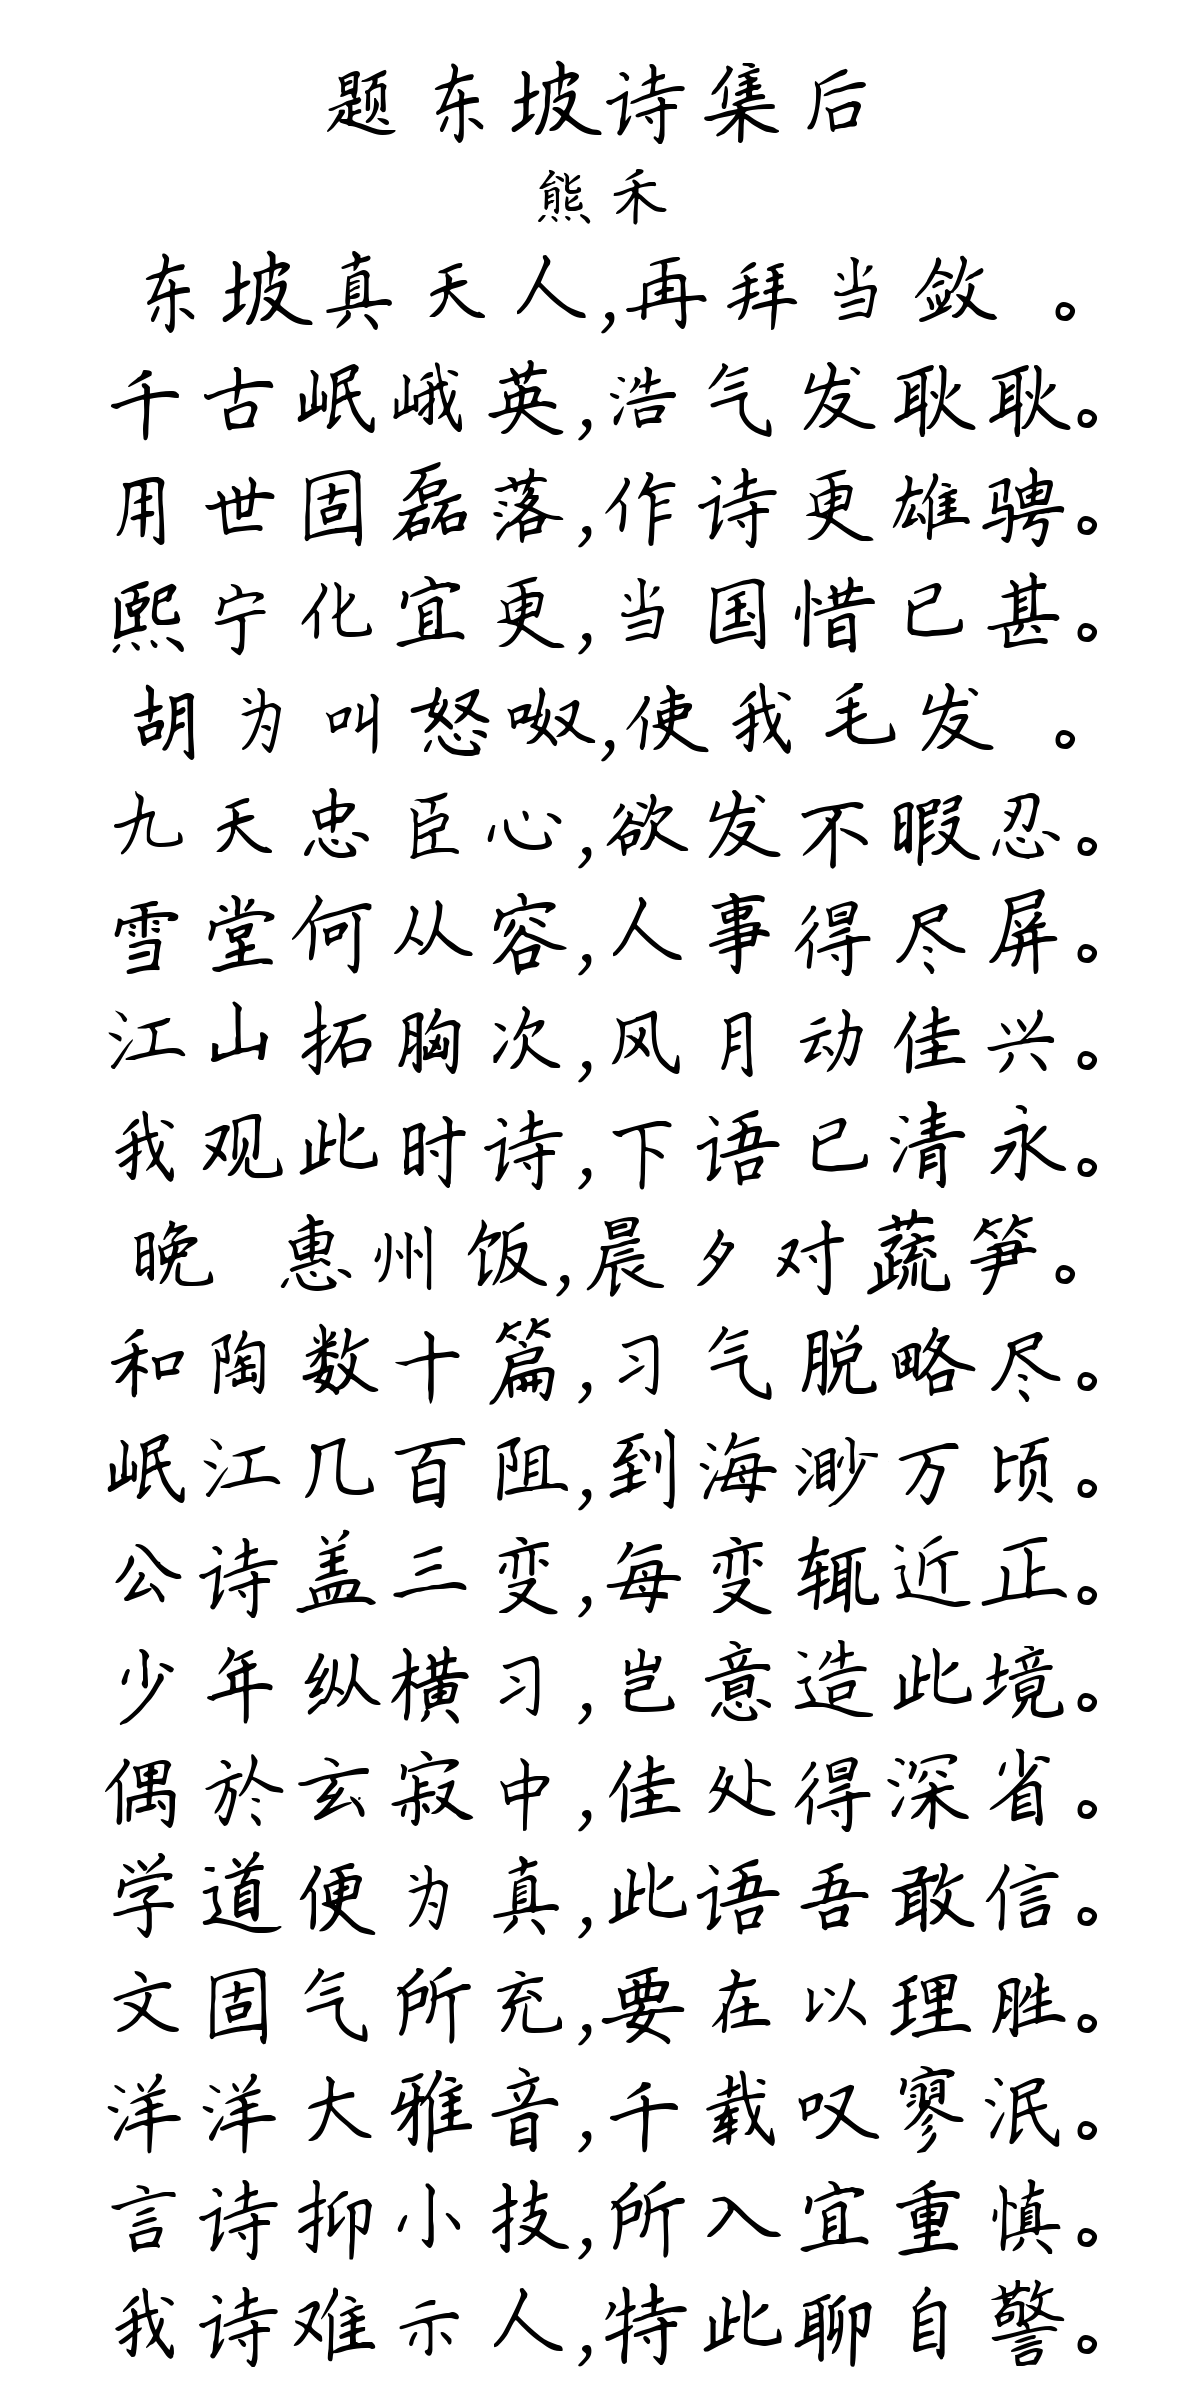 题东坡诗集后
熊禾
东坡真天人,再拜当敛 。
千古岷峨英,浩气发耿耿。
用世固磊落,作诗更雄骋。
熙宁化宜更,当国惜已甚。
胡为叫怒呶,使我毛发 。
九天忠臣心,欲发不暇忍。
雪堂何从容,人事得尽屏。
江山拓胸次,风月动佳兴。
我观此时诗,下语已清永。
晚 惠州饭,晨夕对蔬笋。
和陶数十篇,习气脱略尽。
岷江几百阻,到海渺万顷。
公诗盖三变,每变辄近正。
少年纵横习,岂意造此境。
偶於玄寂中,佳处得深省。
学道便为真,此语吾敢信。
文固气所充,要在以理胜。
洋洋大雅音,千载叹寥泯。
言诗抑小技,所入宜重慎。
我诗难示人,特此聊自警。